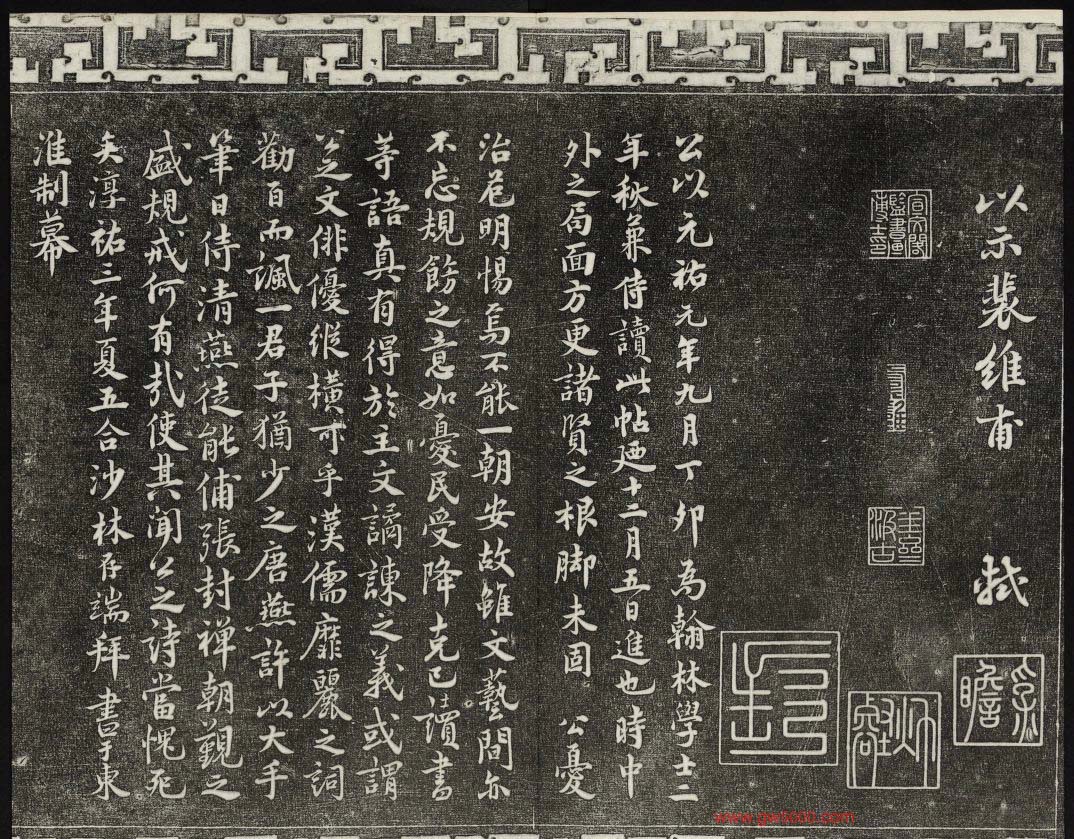 以示裴維甫　軾
公以元祐元年九月丁卯為翰林學士二
年秋兼侍讀此帖迺十二月五日進也時中
外之局面方更諸賢之根脚未固　公憂
治危明惕焉不能一朝安故雖文藝間亦
不忘規飭之意如憂民受降克己讀書
等語真有得於主文譎諫之義或謂
公之文俳優縱橫可乎漢儒靡麗之詞
勸百而諷一君子猶少之唐燕許以大手
筆日侍清燕徒能鋪張封禪朝覲之
盛規戒何有哉使其聞公之詩當愧死
矣淳祐三年夏五合沙林存端拜書于東
淮制幕
www.gwbooo.com